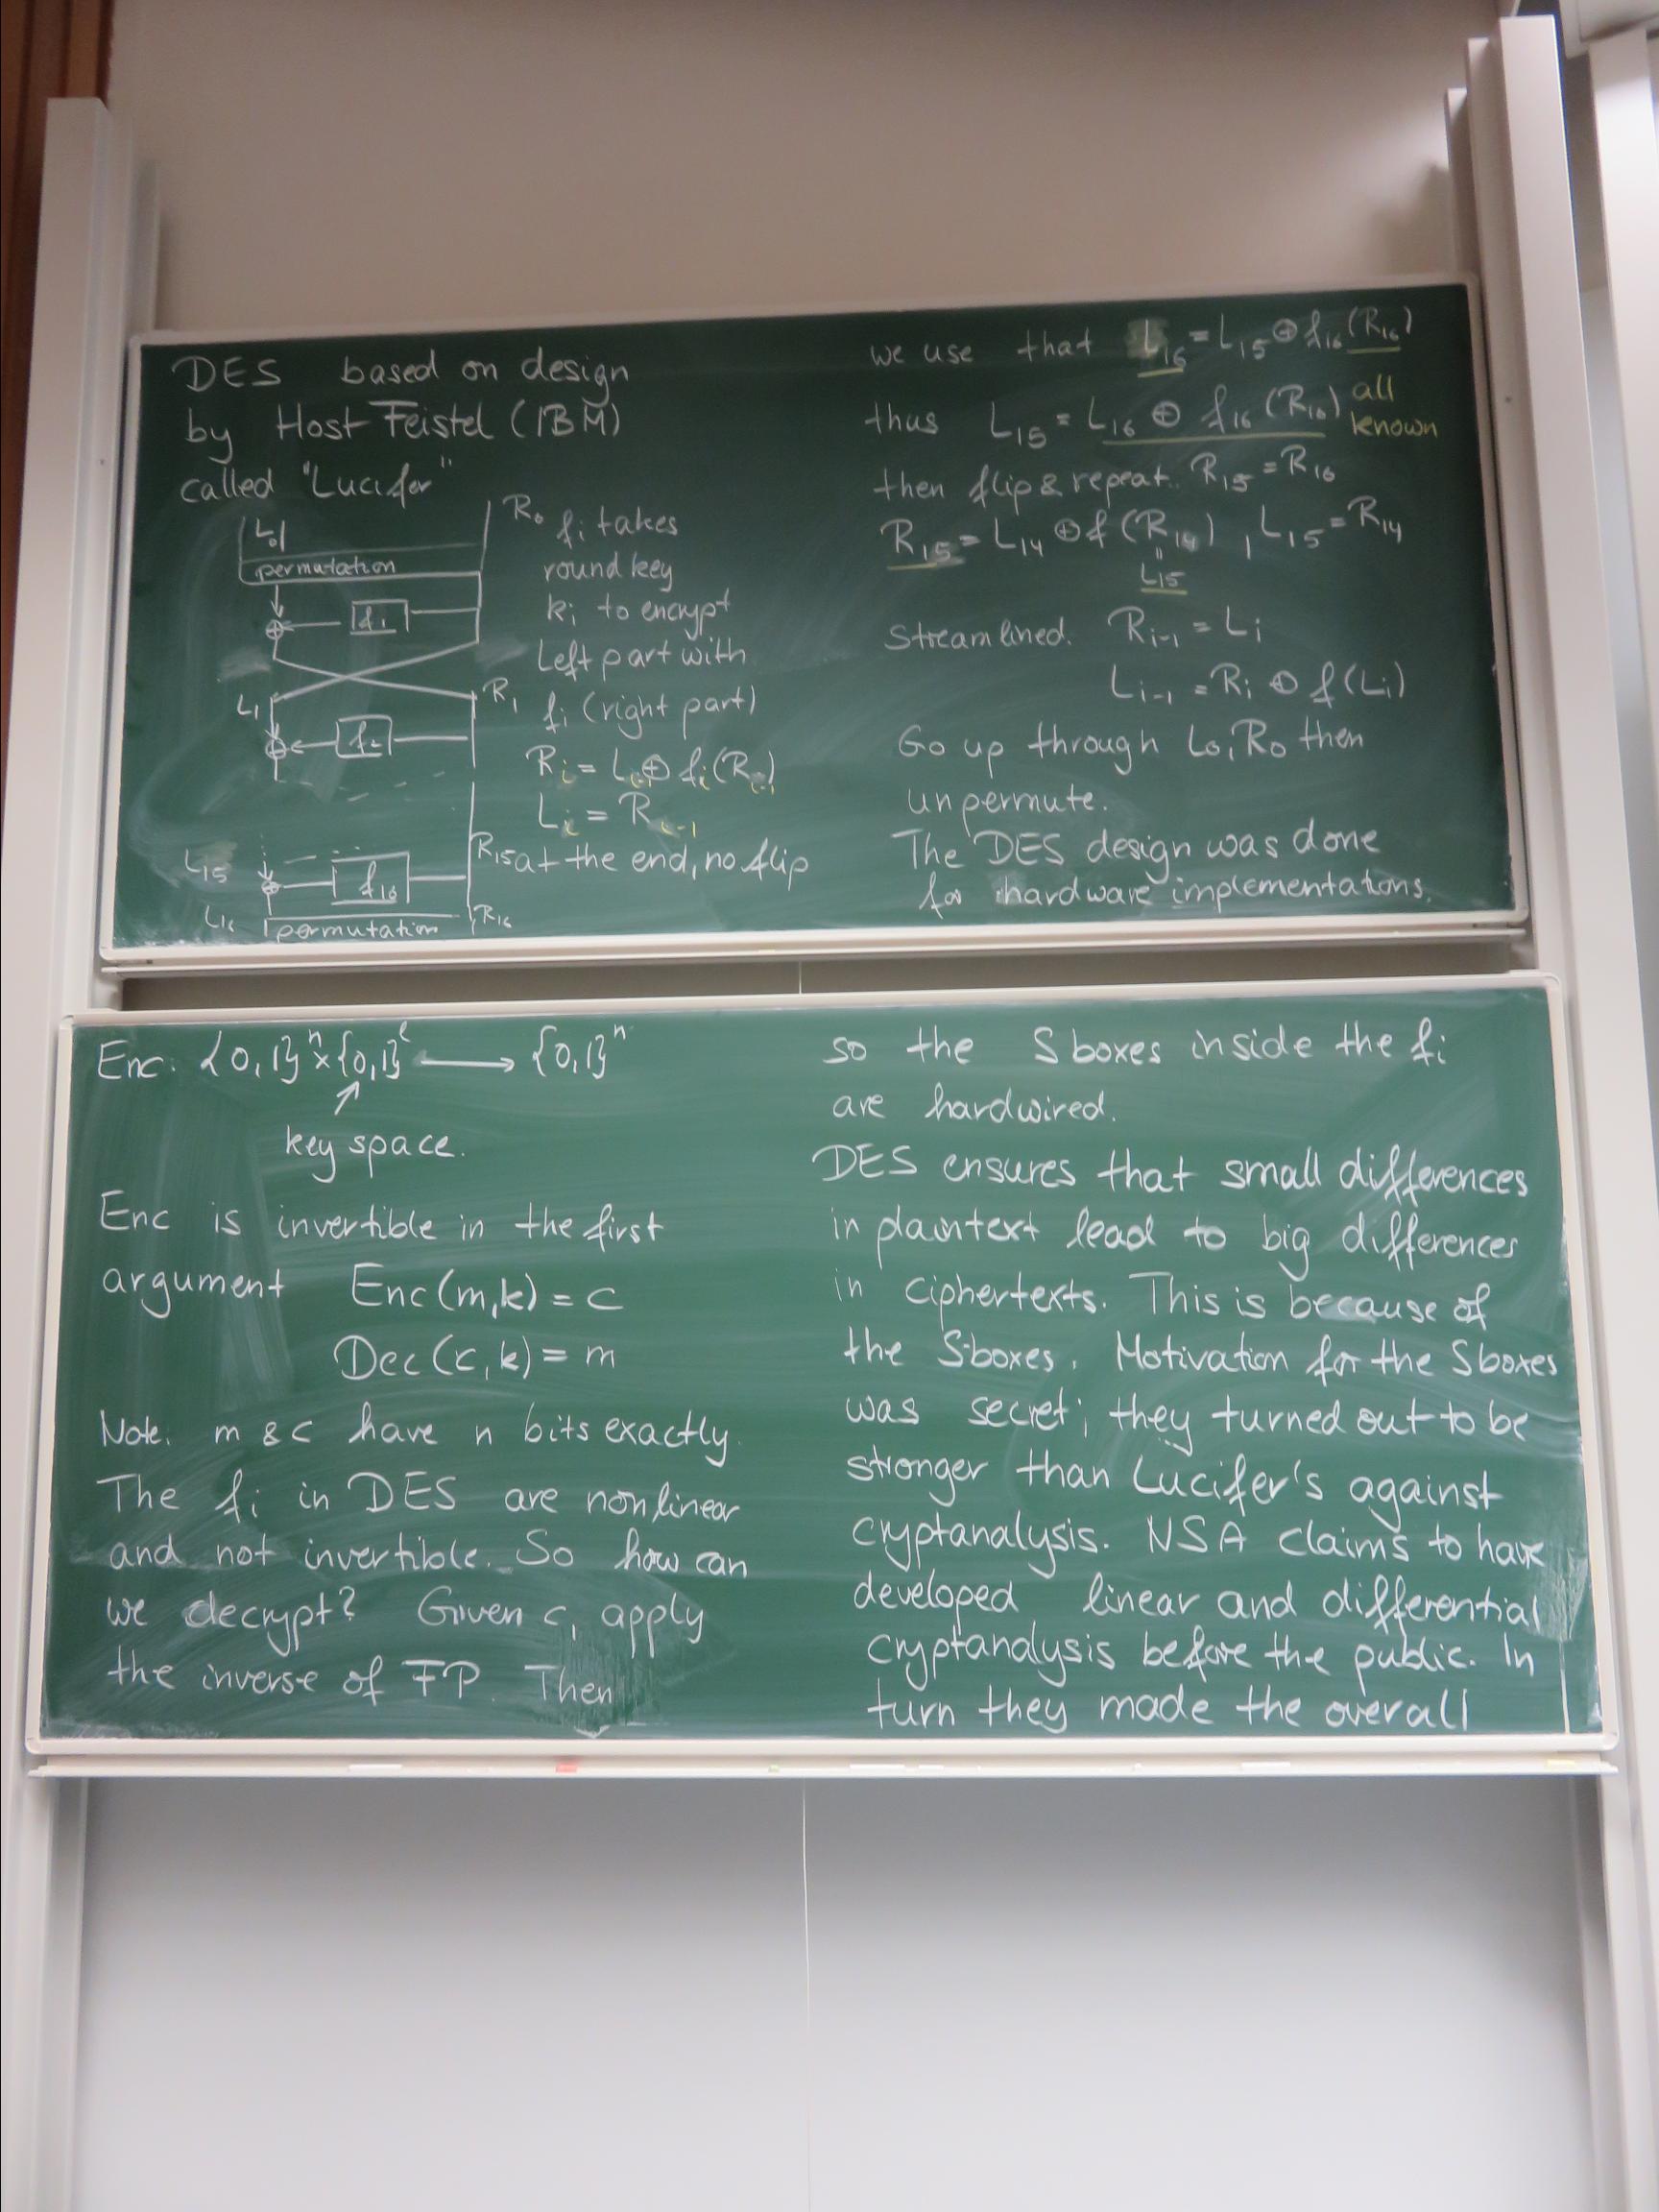 DES based on design
by Host Feistel (IBM)
called "Lucifer"
L₀
R₀
permutation
f₁
L₁
R₁
f₂
L₁₅
R₁₅
f₁₆
L₁₆
R₁₆
permutation
fᵢ takes
round key
kᵢ to encrypt
Left part with
fᵢ (right part)
Rᵢ = Lᵢ₋₁ ⊕ fᵢ(Rᵢ₋₁)
Lᵢ = Rᵢ₋₁
at the end, no flip
we use that L₁₆ = L₁₅ ⊕ f₁₆(R₁₆)
thus L₁₅ = L₁₆ ⊕ f₁₆(R₁₆) all known
then flip & repeat. R₁₅ = R₁₆
R₁₅ = L₁₄ ⊕ f(R₁₄), L₁₅ = R₁₄
"
L₁₅
Streamlined. Rᵢ₋₁ = Lᵢ
Lᵢ₋₁ = Rᵢ ⊕ f(Lᵢ)
Go up through L₀, R₀ then
unpermute.
The DES design was done
for hardware implementations,
Enc: {0,1}ⁿ × {0,1}ˡ ⟶ {0,1}ⁿ
↑
key space.
Enc is invertible in the first
argument Enc(m,k) = c
Dec(c,k) = m
Note. m & c have n bits exactly.
The fᵢ in DES are nonlinear
and not invertible. So how can
we decrypt? Given c, apply
the inverse of FP. Then
so the S boxes inside the fᵢ
are hardwired.
DES ensures that small differences
in plaintext lead to big differences
in ciphertexts. This is because of
the S-boxes. Motivation for the Sboxes
was secret; they turned out to be
stronger than Lucifer's against
cryptanalysis. NSA claims to have
developed linear and differential
cryptanalysis before the public. In
turn they made the overall